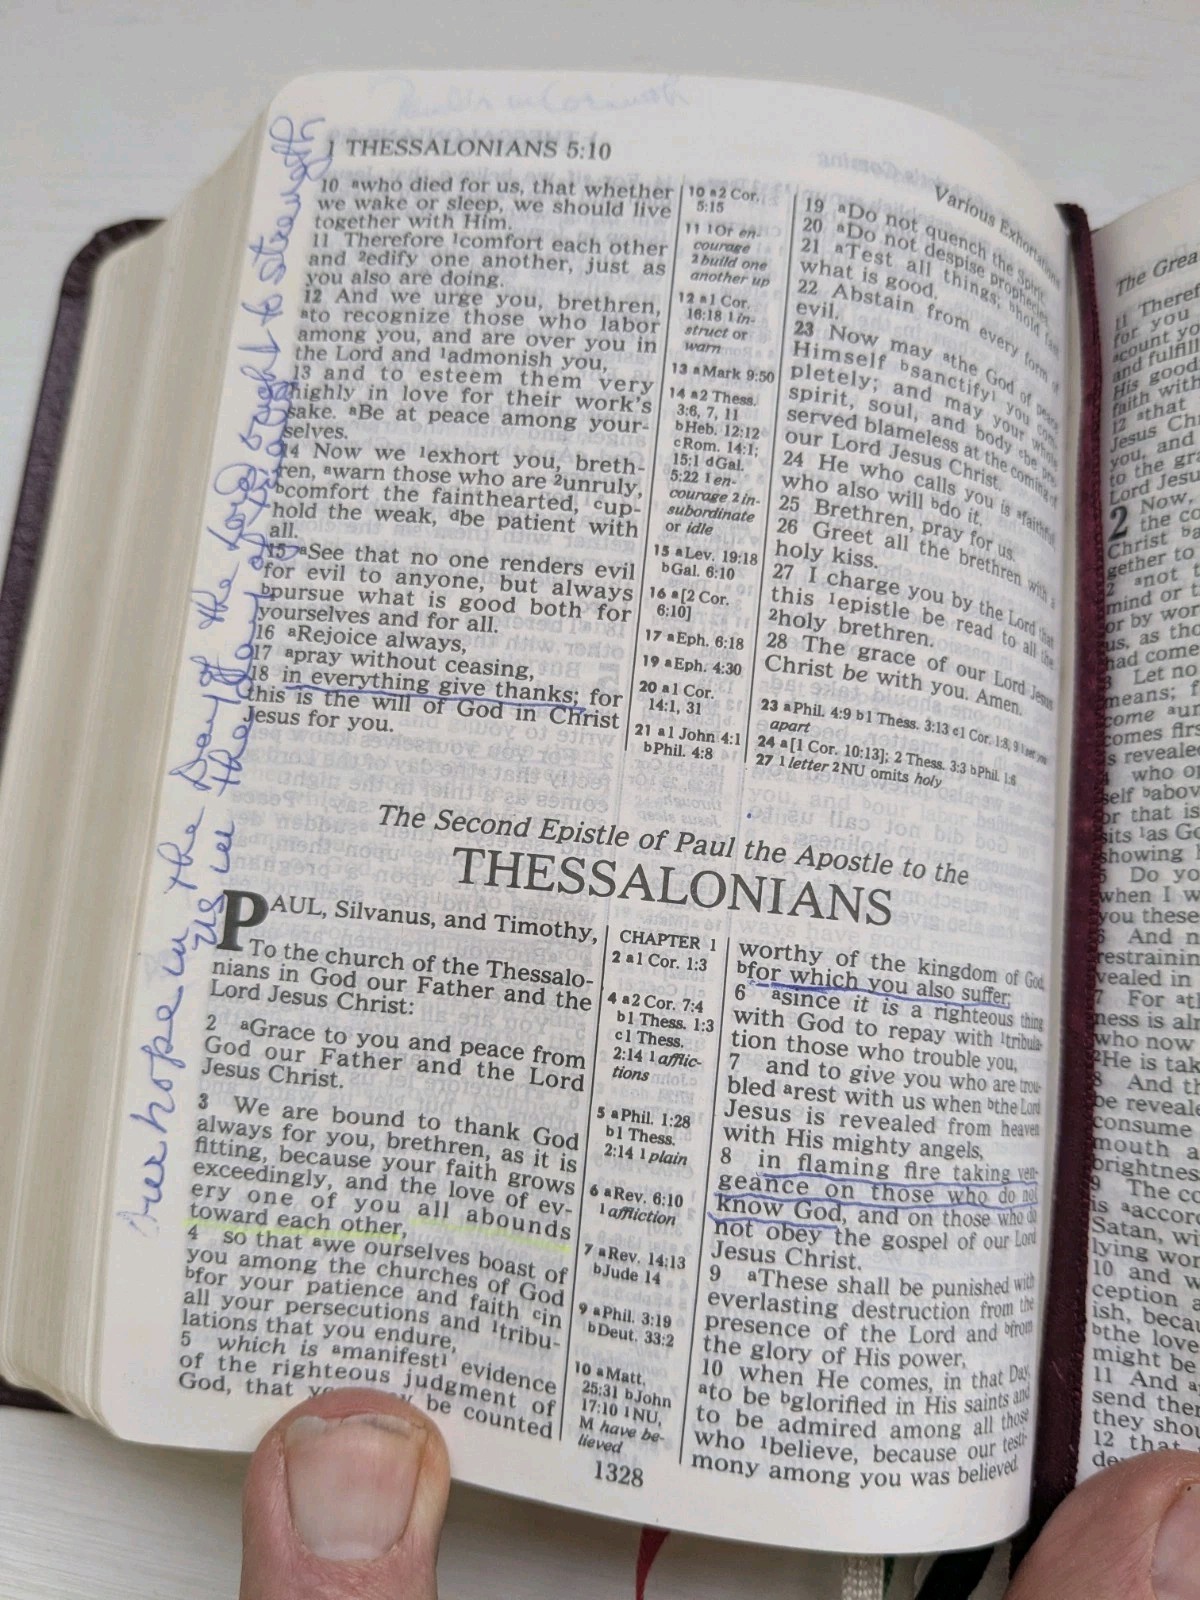 Paul in Corinth
1 THESSALONIANS 5:10
Various Exhortations
10 ᵃwho died for us, that whether
we wake or sleep, we should live
together with Him.
11 Therefore ¹comfort each other
and ²edify one another, just as
you also are doing.
12 And we urge you, brethren,
ᵃto recognize those who labor
among you, and are over you in
the Lord and ¹admonish you,
13 and to esteem them very
highly in love for their work's
sake. ᵃBe at peace among your-
selves.
14 Now we ¹exhort you, breth-
ren, ᵃwarn those who are ²unruly,
ᵇcomfort the fainthearted, ᶜup-
hold the weak, ᵈbe patient with
all.
15 ᵃSee that no one renders evil
for evil to anyone, but always
ᵇpursue what is good both for
yourselves and for all.
16 ᵃRejoice always,
17 ᵃpray without ceasing,
18 in everything give thanks; for
this is the will of God in Christ
Jesus for you.
10 a 2 Cor.
5:15
11 1 Or en-
courage
2 build one
another up
12 a 1 Cor.
16:18 1 in-
struct or
warn
13 a Mark 9:50
14 a 2 Thess.
3:6, 7, 11
b Heb. 12:12
c Rom. 14:1;
15:1 d Gal.
5:22 1 en-
courage 2 in-
subordinate
or idle
15 a Lev. 19:18
b Gal. 6:10
16 a [2 Cor.
6:10]
17 a Eph. 6:18
19 a Eph. 4:30
20 a 1 Cor.
14:1, 31
21 a 1 John 4:1
b Phil. 4:8
19 ᵃDo not quench the Spirit.
20 ᵃDo not despise prophecies.
21 ᵃTest all things; ᵇhold fast
what is good.
22 Abstain from every form of
evil.
23 Now may ᵃthe God of peace
Himself ᵇsanctify¹ you com-
pletely; and may your whole
spirit, soul, and body ᶜbe pre-
served blameless at the coming of
our Lord Jesus Christ.
24 He who calls you is ᵃfaithful,
who also will ᵇdo it.
25 Brethren, pray for us.
26 Greet all the brethren with a
holy kiss.
27 I charge you by the Lord that
this ¹epistle be read to all the
²holy brethren.
28 The grace of our Lord Jesus
Christ be with you. Amen.
23 a Phil. 4:9 b 1 Thess. 3:13 c 1 Cor. 1:8, 9 1 set you
apart
24 a [1 Cor. 10:13]; 2 Thess. 3:3 b Phil. 1:6
27 1 letter 2 NU omits holy
our hope in the Day of the Lord ought to strength
us in the
The Second Epistle of Paul the Apostle to the
THESSALONIANS
PAUL, Silvanus, and Timothy,
To the church of the Thessalo-
nians in God our Father and the
Lord Jesus Christ:
2 ᵃGrace to you and peace from
God our Father and the Lord
Jesus Christ.
3 We are bound to thank God
always for you, brethren, as it is
fitting, because your faith grows
exceedingly, and the love of ev-
ery one of you all abounds
toward each other,
4 so that ᵃwe ourselves boast of
you among the churches of God
ᵇfor your patience and faith ᶜin
all your persecutions and ¹tribu-
lations that you endure,
5 which is ᵃmanifest¹ evidence
of the righteous judgment of
God, that be counted
CHAPTER 1
2 a 1 Cor. 1:3
4 a 2 Cor. 7:4
b 1 Thess. 1:3
c 1 Thess.
2:14 1 afflic-
tions
5 a Phil. 1:28
b 1 Thess.
2:14 1 plain
6 a Rev. 6:10
1 affliction
7 a Rev. 14:13
b Jude 14
9 a Phil. 3:19
b Deut. 33:2
10 a Matt.
25:31 b John
17:10 1 NU,
M have be-
lieved
worthy of the kingdom of God,
ᵇfor which you also suffer;
6 ᵃsince it is a righteous thing
with God to repay with ¹tribula-
tion those who trouble you,
7 and to give you who are trou-
bled ᵃrest with us when ᵇthe Lord
Jesus is revealed from heaven
with His mighty angels,
8 in flaming fire taking ven-
geance on those who do not
know God, and on those who do
not obey the gospel of our Lord
Jesus Christ.
9 ᵃThese shall be punished with
everlasting destruction from the
presence of the Lord and ᵇfrom
the glory of His power,
10 when He comes, in that Day,
ᵃto be ᵇglorified in His saints and
to be admired among all those
who ¹believe, because our testi-
mony among you was believed.
1328
The Grea
11 Theref
for you
count yo
and fulfill
His good
faith with
12 ᵃthat
Jesus Chr
you, and
to the gra
Lord Jesu
2 Now,
the co
Christ ᵇa
gether to
2 ᵃnot t
mind or t
or by wor
us, as tho
had come
3 Let no
means; f
come ᵃun
comes firs
is reveale
4 who op
self ᵇabov
or that is
sits ¹as Go
showing h
5 Do yo
when I w
you these
6 And n
restrainin
vealed in
7 For ᵃth
ness is alr
who now
²He is tak
8 And th
be reveale
consume
mouth a
brightnes
9 The co
is ᵃaccor
Satan, wi
lying won
10 and w
ception a
ish, becau
ᵇthe love
might be
11 And ᵃ
send ther
they shou
12 that